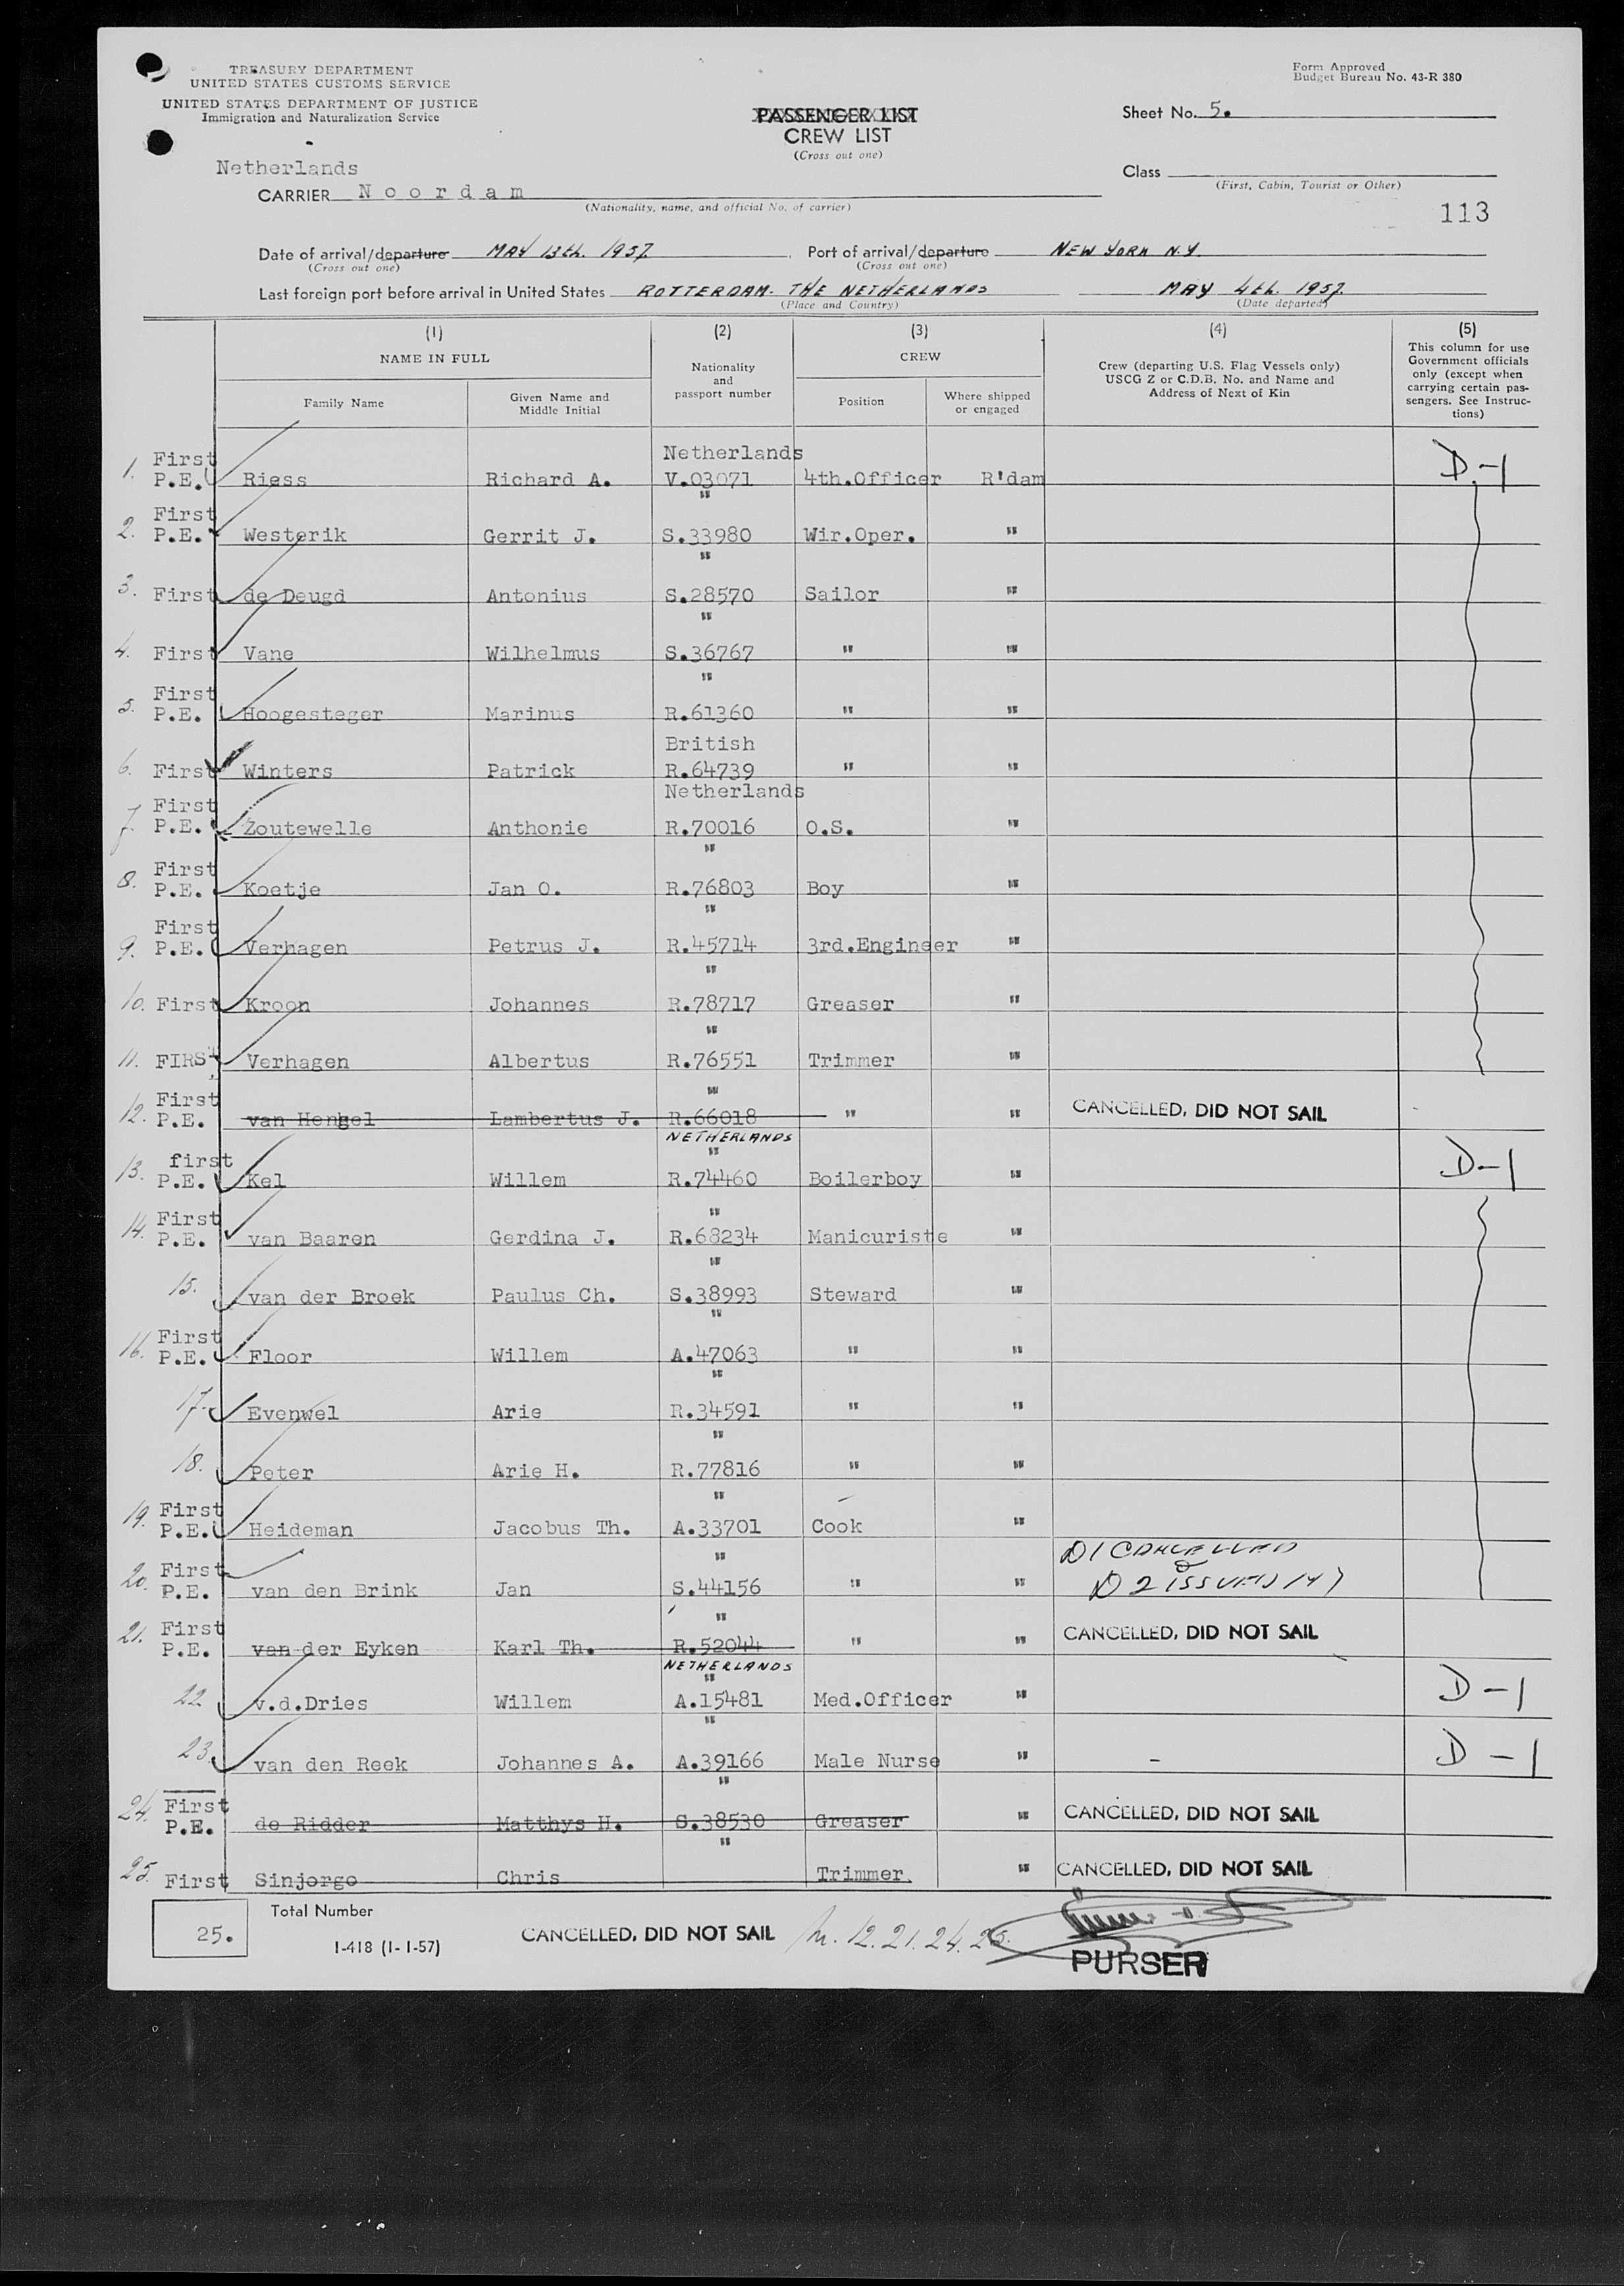 TREASURY DEPARTMENT
UNITED STATES CUSTOMS SERVICE
UNITED STATES DEPARTMENT OF JUSTICE
Immigration and Naturalization Service
Form Approved
Budget Bureau No. 43-R 380
PASSENGER LIST
CREW LIST
(Cross out one)
Sheet No. 5.
Class
(First, Cabin, Tourist or Other)
113
Netherlands
CARRIER Noordam
(Nationality, name, and official No. of carrier)
Date of arrival/departure MAY 13th. 1957. Port of arrival/departure NEW YORK N.Y.
(Cross out one) (Cross out one)
Last foreign port before arrival in United States ROTTERDAM. THE NETHERLANDS MAY 4th. 1957.
(Place and Country) (Date departed)
(1) (2) (3) (4) (5)
NAME IN FULL
Family Name
Given Name and Middle Initial
Nationality and passport number
CREW
Position
Where shipped or engaged
Crew (departing U.S. Flag Vessels only) USCG Z or C.D.B. No. and Name and Address of Next of Kin
This column for use Government officials only (except when carrying certain passengers. See Instructions)
Netherlands
1. First P.E. Riess Richard A. V.03071 4th.Officer R'dam D-1
"
2. First P.E. Westerik Gerrit J. S.33980 Wir.Oper. "
"
3. First de Deugd Antonius S.28570 Sailor "
"
4. First Vane Wilhelmus S.36767 " "
"
5. First P.E. Hoogesteger Marinus R.61360 " "
British
6. First Winters Patrick R.64739 " "
Netherlands
7. First P.E. Zoutewelle Anthonie R.70016 O.S. "
"
8. First P.E. Koetje Jan O. R.76803 Boy "
"
9. First P.E. Verhagen Petrus J. R.45714 3rd.Engineer "
"
10. First Kroon Johannes R.78717 Greaser "
"
11. FIRST Verhagen Albertus R.76551 Trimmer "
"
12. First P.E. van Hengel Lambertus J. R.66018 " " CANCELLED, DID NOT SAIL
NETHERLANDS
"
13. first P.E. Kel Willem R.74460 Boilerboy " D-1
"
14. First P.E. van Baaren Gerdina J. R.68234 Manicuriste "
"
15. van der Broek Paulus Ch. S.38993 Steward "
"
16. First P.E. Floor Willem A.47063 " "
"
17. Evenwel Arie R.34591 " "
"
18. Peter Arie H. R.77816 " "
"
19. First P.E. Heideman Jacobus Th. A.33701 Cook "
"
20. First P.E. van den Brink Jan S.44156 " " D1 CANCELLED & D 2 ISSUED
"
21. First P.E. van der Eyken Karl Th. R.52044 " " CANCELLED, DID NOT SAIL
NETHERLANDS
"
22. v.d.Dries Willem A.15481 Med.Officer " D-1
"
23. van den Reek Johannes A. A.39166 Male Nurse " - D-1
"
24. First P.E. de Ridder Matthys H. S.38530 Greaser " CANCELLED, DID NOT SAIL
"
25. First Sinjorgo Chris Trimmer. " CANCELLED, DID NOT SAIL
25. Total Number
I-418 (1-1-57)
CANCELLED, DID NOT SAIL 12. 21. 24. 25.
PURSER